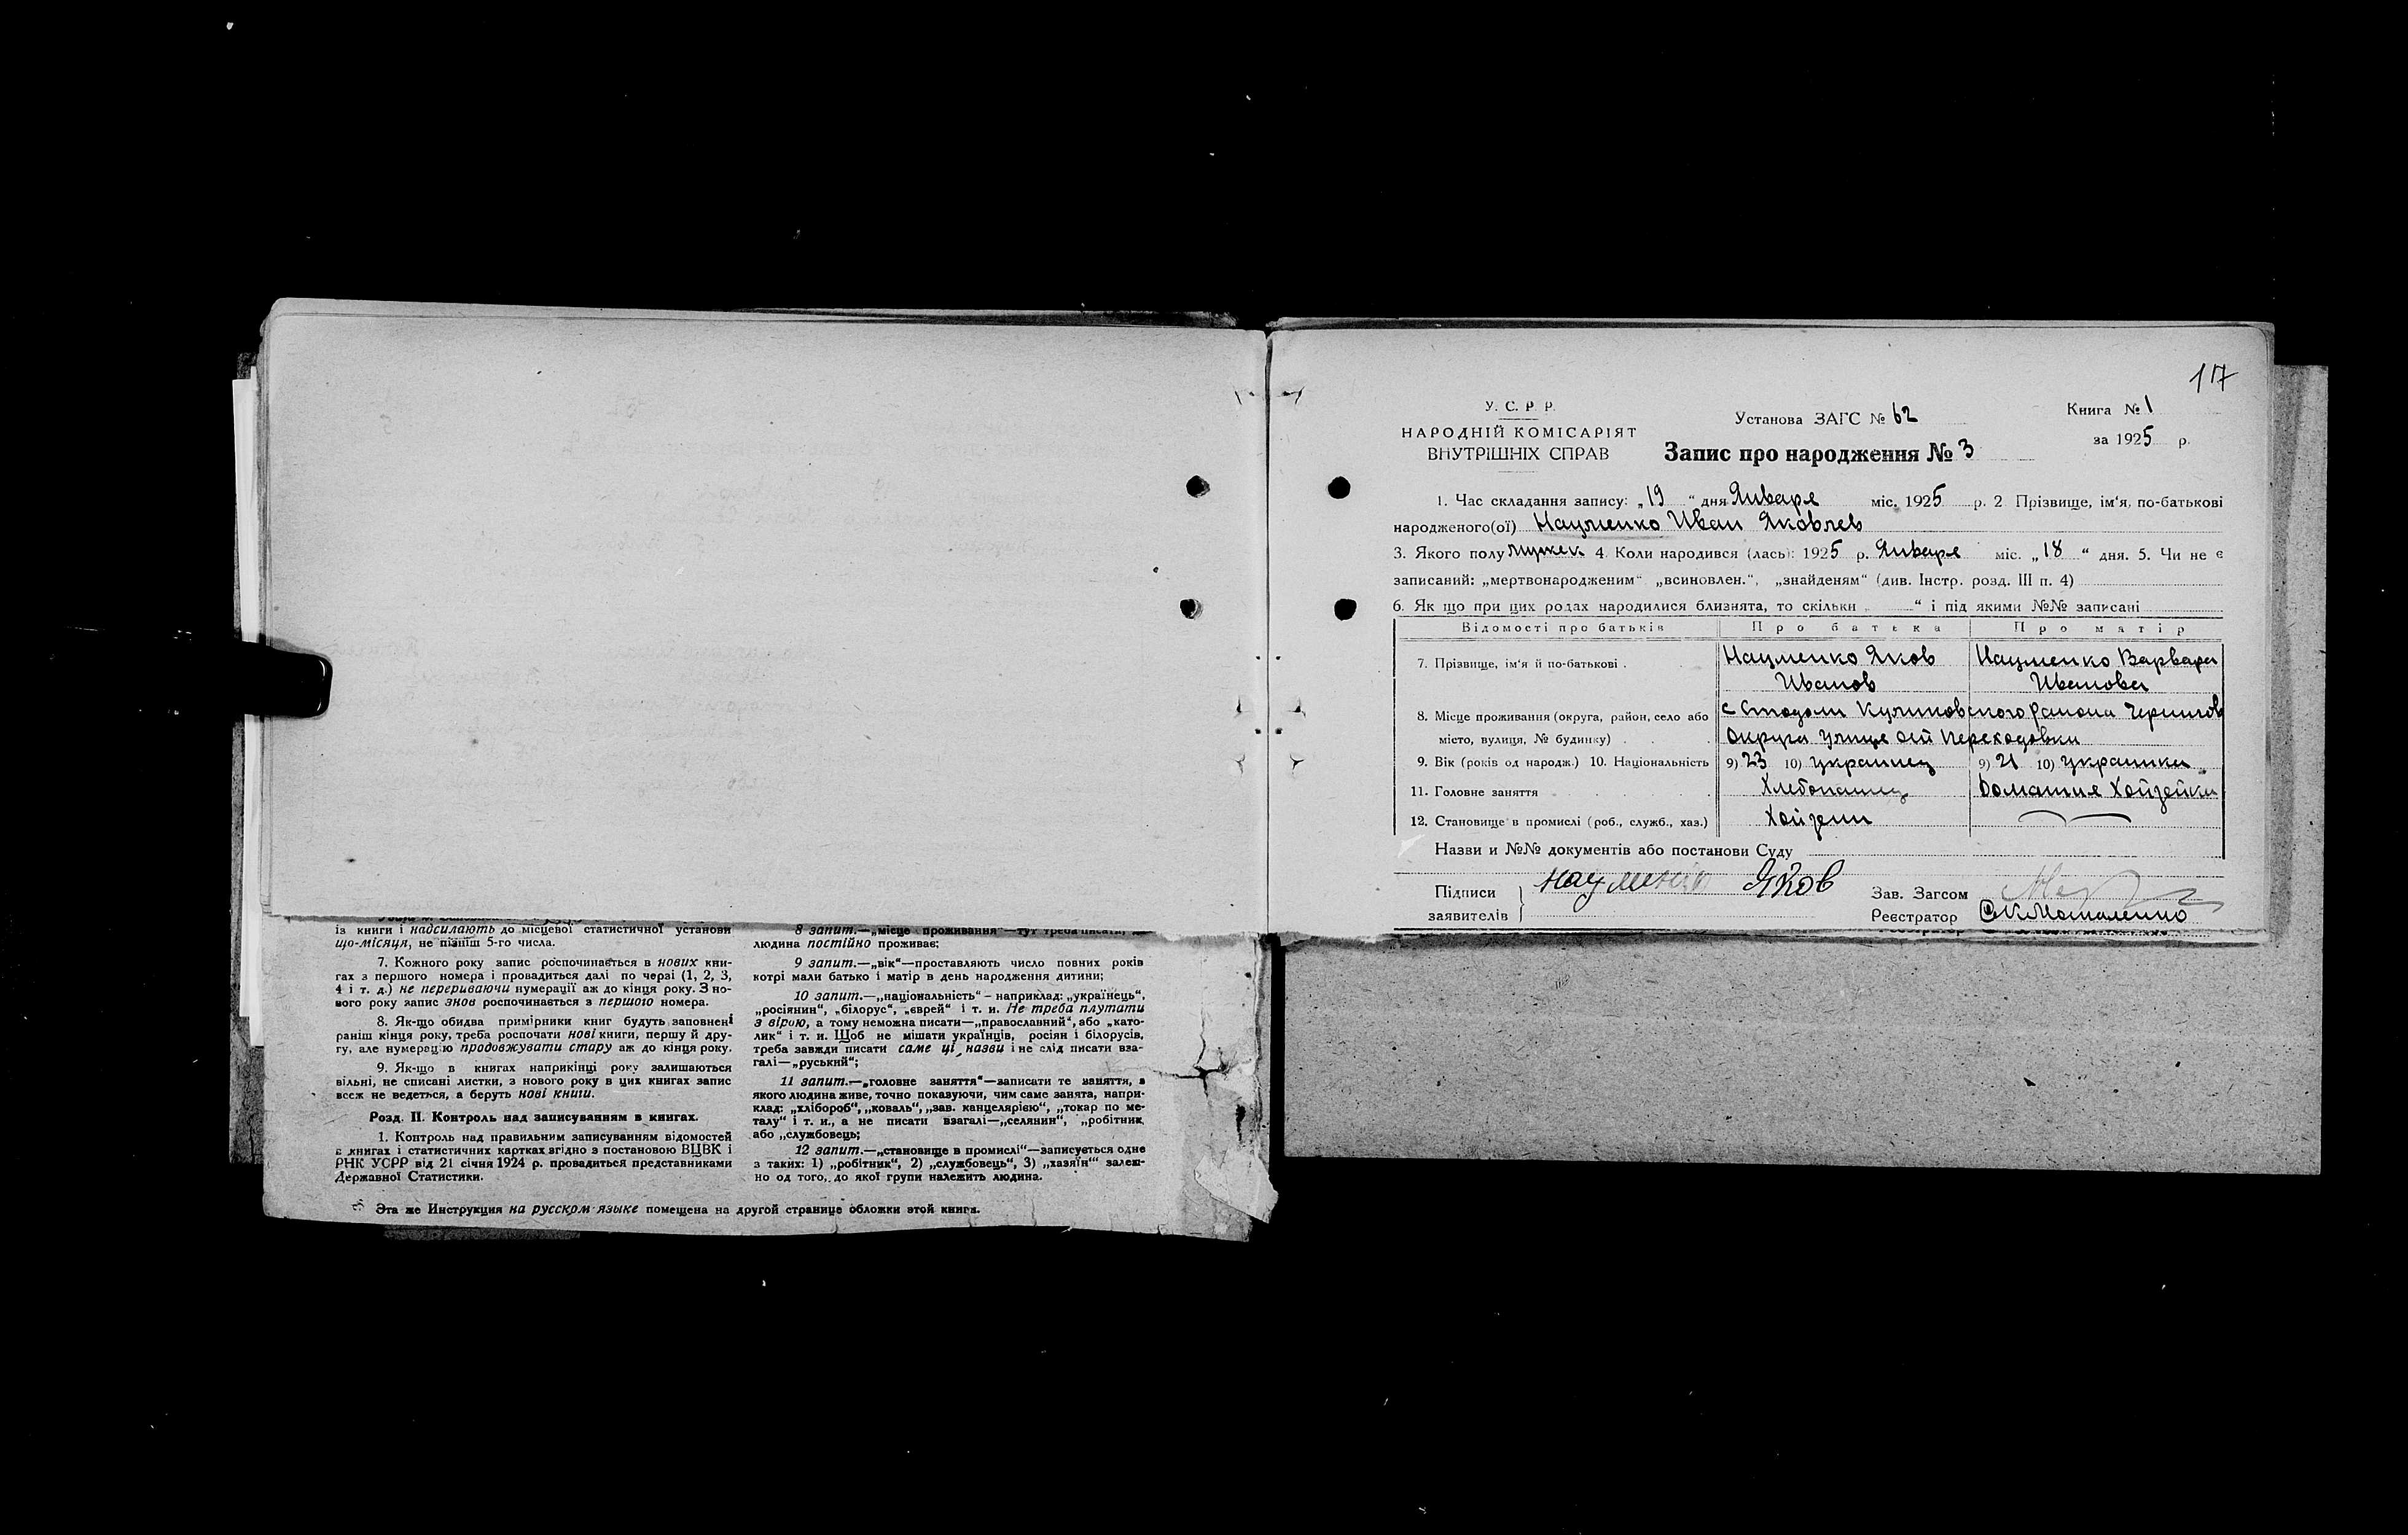 із книги і надсилають до місцевої статистичної установи
що-місяця, не пізніш 5-го числа.
7. Кожного року запис роспочинається в нових кни-
гах з першого номера і провадиться далі по черзі (1, 2, 3,
4 і т. д.) не перериваючи нумерації аж до кінця року. З но-
вого року запис знов роспочинається з першого номера.
8. Як-що обидва примірники книг будуть заповнені
раніш кінця року, треба роспочати нові книги, першу й дру-
гу, але нумерацію продовжувати стару аж до кінця року.
9. Як-що в книгах наприкінці року залишаються
вільні, не списані листки, з нового року в цих книгах запис
всеж не ведеться, а беруть нові книги.
Розд. II. Контроль над записуванням в книгах.
1. Контроль над правильним записуванням відомостей
в книгах і статистичних картках згідно з постановою ВЦВК і
РНК УСРР від 21 січня 1924 р. провадиться представниками
Державної Статистики.
8 запит.—„місце проживання“—тут треба писати,
людина постійно проживає;
9 запит.—„вік“—проставляють число повних років
котрі мали батько і матір в день народження дитини;
10 запит.—„національність“ – наприклад: „українець“,
„росіянин“, „білорус“, „єврей“ і т. и. Не треба плутати
з вірою, а тому неможна писати—„православний“, або „като-
лик“ і т. и. Щоб не мішати українців, росіян і білорусів,
треба завжди писати саме ці назви і не слід писати вза-
галі—„руський“;
11 запит.—„головне заняття“—записати те заняття, з
якого людина живе, точно показуючи, чим саме занята, напри-
клад: „хлібороб“, „коваль“, „зав. канцелярією“, „токар по ме-
талу“ і т. и., а не писати взагалі—„селянин“, „робітник
або „службовець;
12 запит.—„становище в промислі“—записується одне
з таких: 1) „робітник“, 2) „службовець“, 3) „хазяїн“ залеж-
но од того, до якої групи належить людина.
Эта же Инструкция на русском языке помещена на другой странице обложки этой книги.
117
У. С. Р. Р.
НАРОДНІЙ КОМІСАРІЯТ
ВНУТРІШНІХ СПРАВ
Установа ЗАГС № 62
Запис про народження № 3
Книга № 1
за 1925 р.
1. Час складання запису: „19“ дня Января міс. 1925 р. 2. Прізвище, ім‘я, по-батькові
народженого(ої) Науменко Иван Яковлев
3. Якого полу мужск 4. Коли народився (лась): 1925 р. Января міс. „18“ дня. 5. Чи не є
записаний: „мертвонародженим“ „всиновлен.“, „знайденям“ (див. Інстр. розд. III п. 4)
6. Як що при цих родах народилися близнята, то скільки „ “ і під якими №№ записані
Відомості про батьків Про батька Про матір
7. Прізвище, ім‘я й по-батькові Науменко Яков Науменко Варвара
Иванов Иванова
8. Місце проживання (округа, район, село або с Стодоли Куликовского района Чернигов
місто, вулиця, № будинку) Округа улице
9. Вік (років од народж.) 10. Національність 9) 23 10) украинец 9) 21 10) украинка
11. Головне заняття Хлебопашец Домашня Хойзейка
12. Становище в промислі (роб., служб., хаз.) Хойзеин
Назви и №№ документів або постанови Суду
Підписи Науменко Яков Зав. Загсом
заявителів Реєстратор